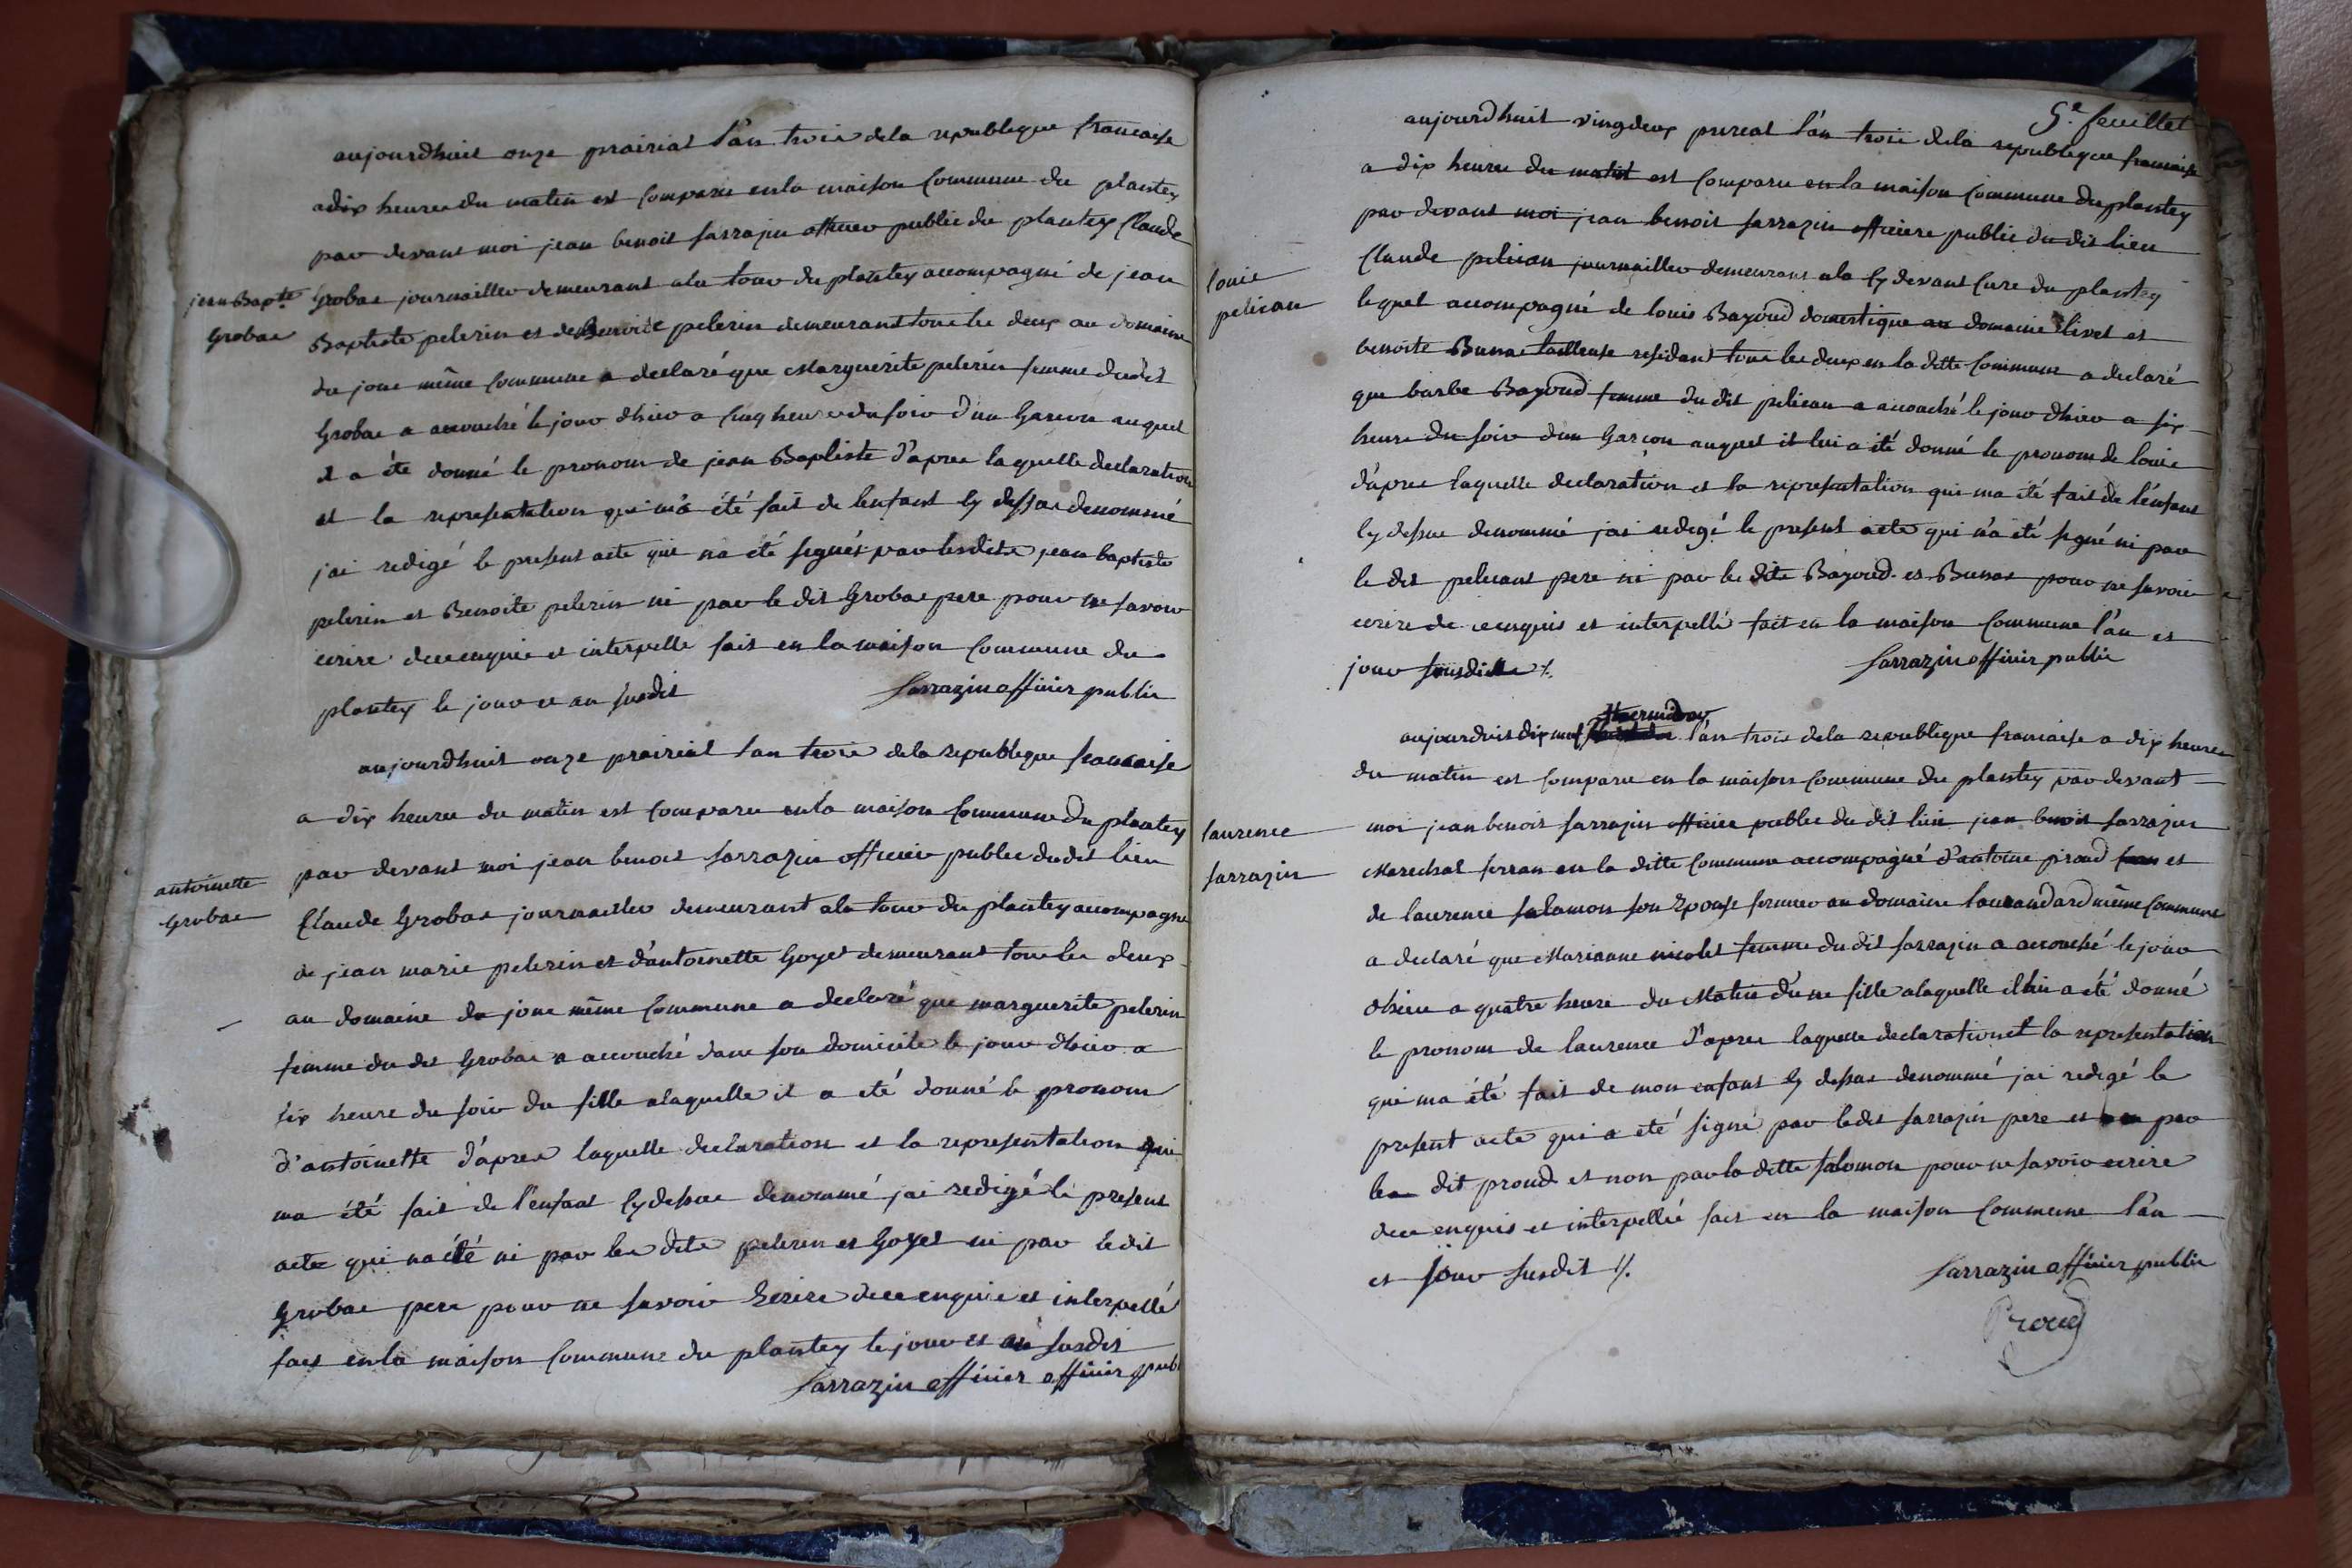 aujourdhuit onze prairial l'an trois dela republeque francaise
adix heures du matin est comparu enla maison commune du plantey
par devant moi jean benoit sarrazin officier public du plantey Claude
jean Bapte
Grobas
Grobas journaillier demeurant ala tour du plantey accompagné de jean
Baptiste pelerin et de Benoite pelerin demeurant tous les deux au domaine
du jour même commune a declaré que Marguerite pelerin femme dudit
Grobas a accouché le jour dhier a cinq heures du soir d'un Garcon auquel
il a été donné le pronom de jean Baptiste d'apres laquelle declaration
et la representation qui m'a été fait de lenfant cy dessus denommé
jai redigé le present acte qui na été signés par lesdits jean baptiste
pelerin et Benoite pelerin ni par le dit Grobas pere pour ne savoir
ecrire dece enquis et interpelle fait en la maison commune du
plantey le jour et an susdit
Sarrazin officier public
aujourdhuit onze prairial lan trois dela republeque francaise
a dix heures du matin est comparu enla maison commune du plantey
par devant moi jean benoit sarrazin officier public dudit lieu
antoinette
Grobas
Claude Grobas journaillier demeurant ala tour du plantey accompagné
de jean marie pelerin et d'antoinette Goyet demeurant tous les deux
au domaine du jour même commune a declaré que marguerite pelerin
femme du dit Grobas a accouché dans son domicile le jour dhier a
six heure du soir du fille alaquelle il a été donné le pronom
d'antoinette d'apres laquelle declaration et la representation qui
ma été fait de l'enfant cy dessus denommé jai redigé le present
acte qui na été ni par les dits pelerin et Goyet ni par ledit
Grobas pere pour ne savoir Ecrire dece enquis et interpellé
fait enla maison commune du plantey le jour et an susdit
Sarrazin officier officier publ
5e feuillet
aujourdhuit vingdeux prereal l'an trois dela republeque francaise
a dix heures du matin est comparu en la maison commune du plantey
par devant moi jean benoit sarrazin officiere public du dit lieu
louis
pelican
Claude pelican journaillier demeurant ala cy devant Cure du plantey
lequel accompagné de louis Bayoud domestique au domaine livet et
benoite Bunas tailleuse residant tous les deux en la ditte commune a declaré
que barbe Bayoud femme du dit pelican a accouché le jour dhier a six
heure du soir dun Garcon auquel il lui a été donné le pronom de louis
d'apres laquelle declaration et la representation qui ma été fait de l'enfant
cy dessus denommé jai redigé le present acte qui n'a été signé ni par
le dit pelicant pere ni par les dits Bayoud et Bunas pour ne savoir
ecrire de ce enquis et interpellé fait en la maison commune l'an et
jour susdit
Sarrazin officier public
thermidor
aujourdhuit dix neuf l'an trois dela republique francaise a dix heures
du matin est comparu en la maison commune du plantey par devant
laurence
sarrazin
moi jean benoit sarrazin officier public du dit lieu jean benoit sarrazin
Marechal ferran en la ditte commune accompagné d'antoine proud et
de laurence salamon son Epouse fermier au domaine même commune
a declaré que Marianne nicolet femme du dit sarrazin a accouché le jour
dhier a quatre heure du Matin d'une fille alaquelle il lui a été donné
le pronom de laurence d'apres laquelle declaration et la representation
qui ma été fait de mon enfant cy dessus denommé jai redigé le
present acte qui a été signé par ledit sarrazin pere et par
le dit proud et non par la ditte salomon pour ne savoir ecrire
dece enquis et interpellé fait en la maison commune l'an
et jour susdit
Sarrazin officier public
Proud